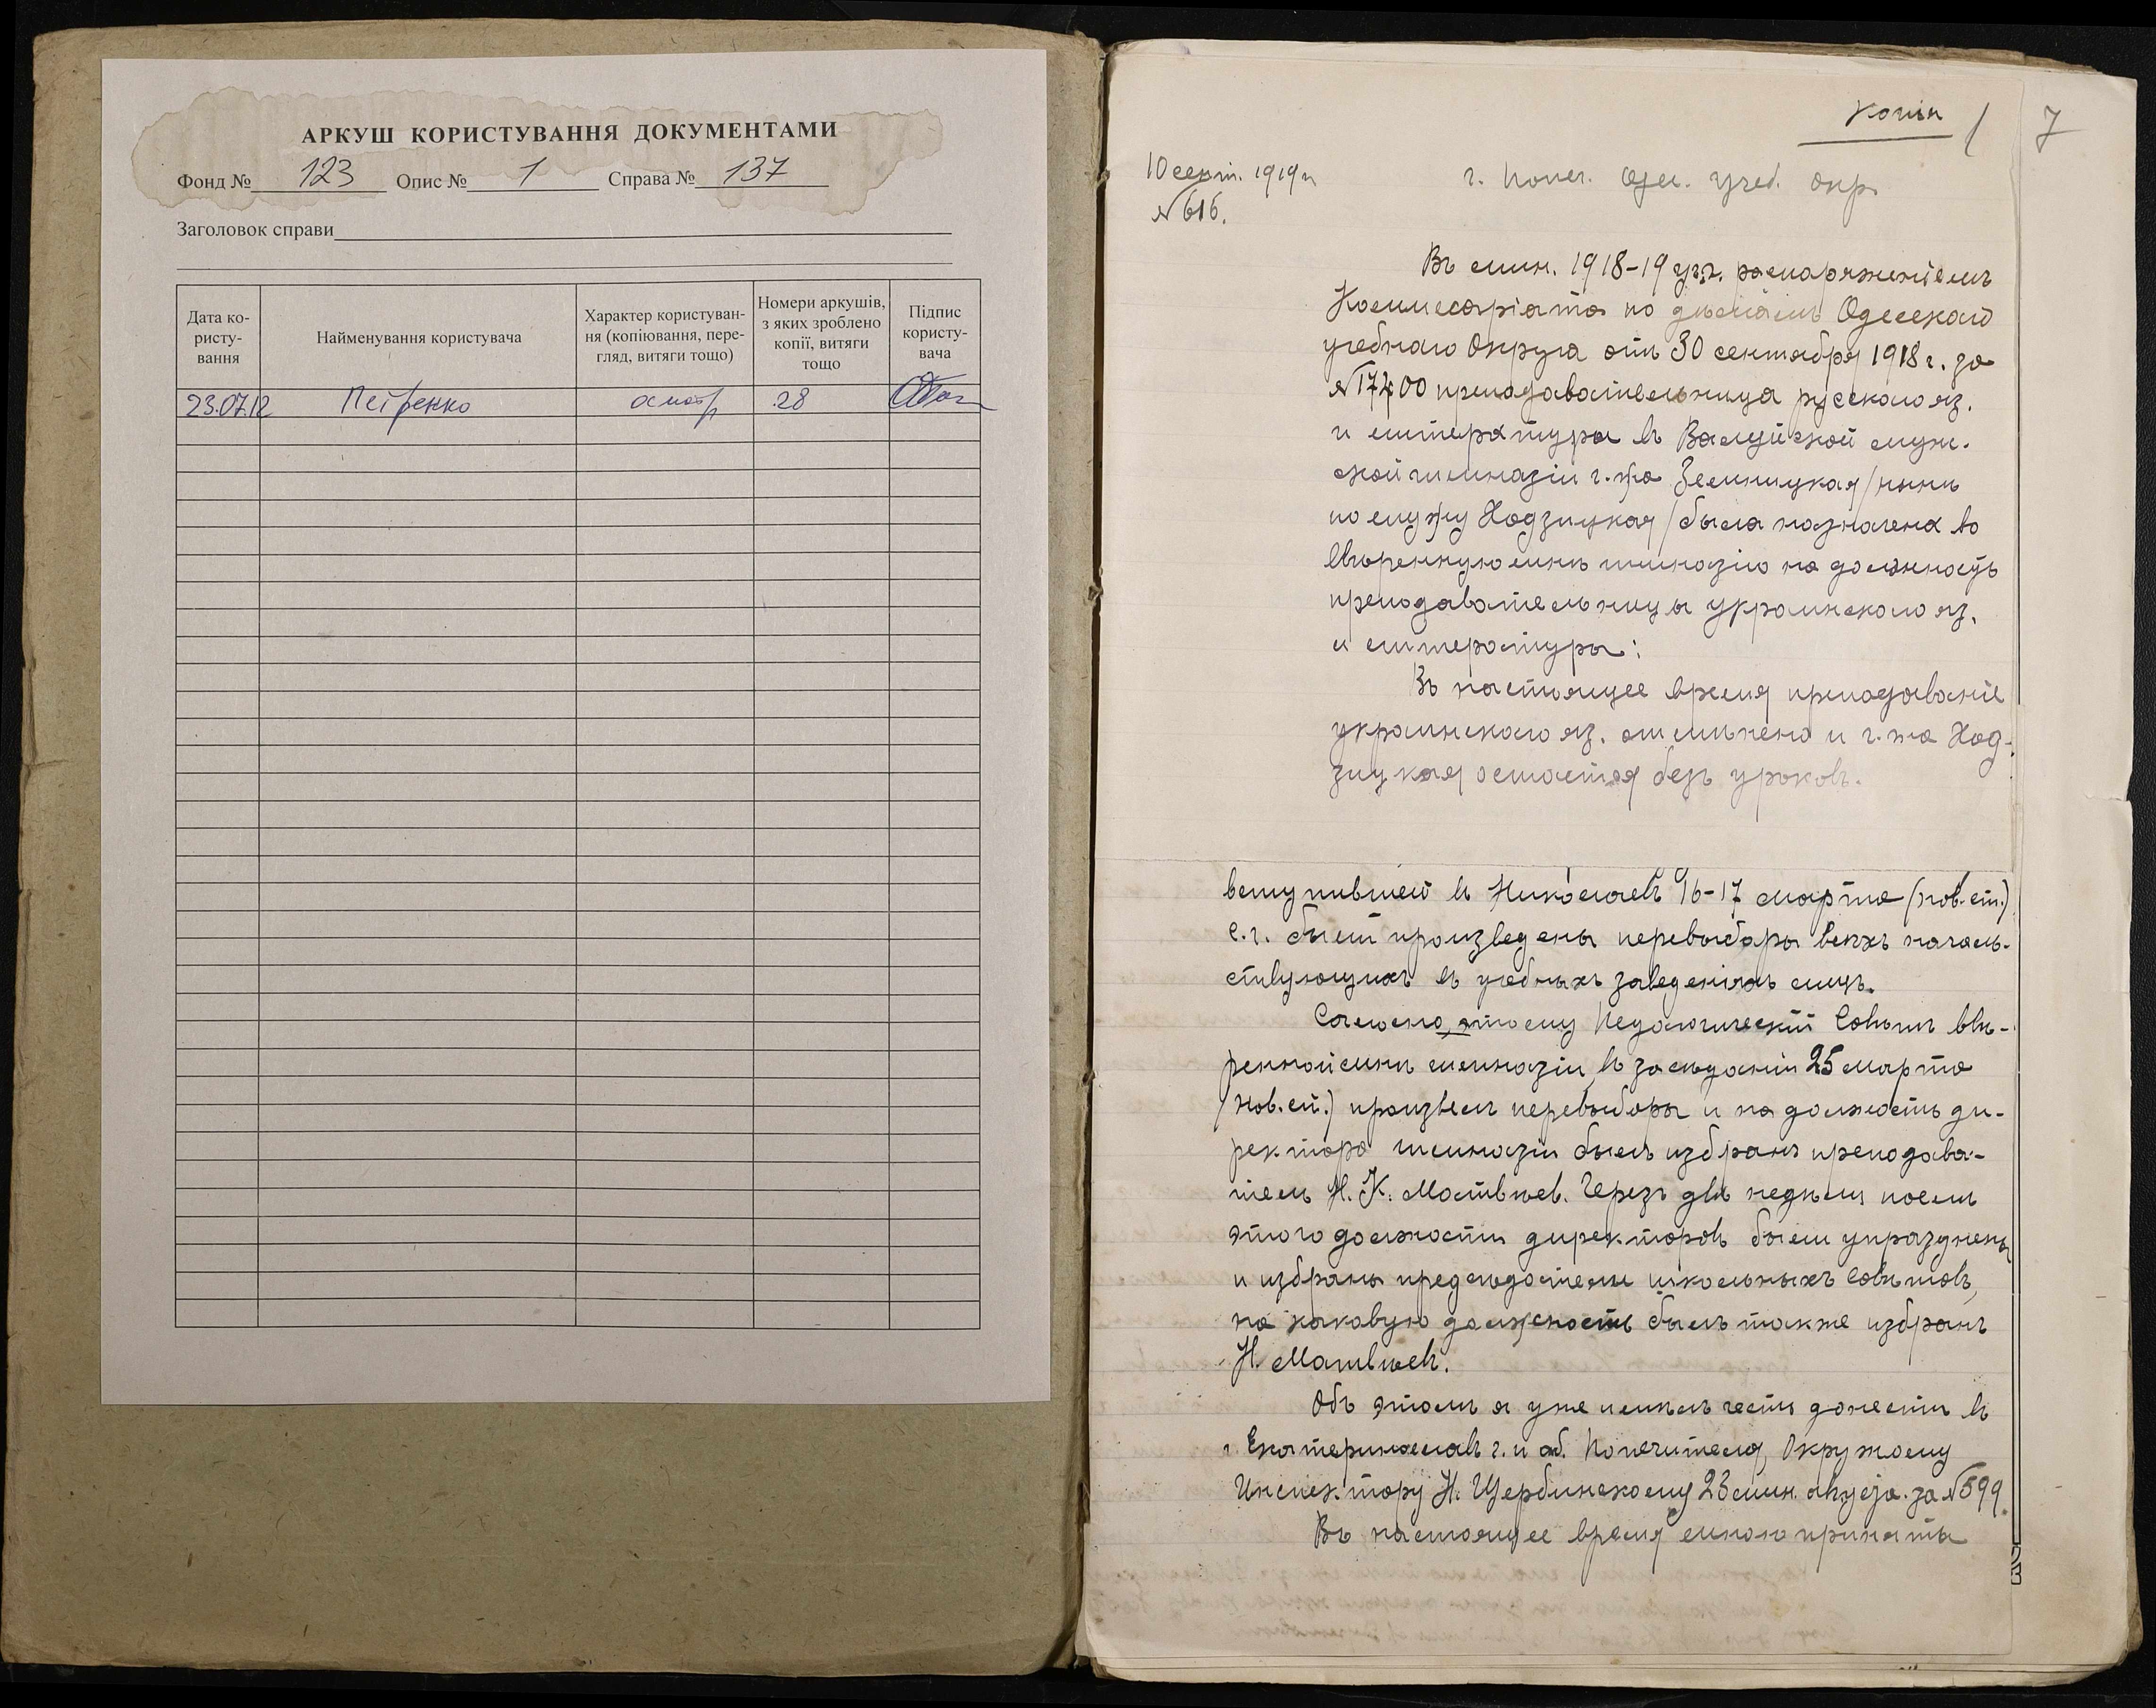 АРКУШ КОРИСТУВАННЯ ДОКУМЕНТАМИ
Фонд № 123 Опис № 1 Справа № 137
Заголовок справи
Дата ко-
ристу-
вання
Найменування користувача
Характер користуван-
ня (копіювання, пере-
гляд, витяги тощо)
Номери аркушів,
з яких зроблено
копії, витяги
тощо
Підпис
користу-
вача
23.07.12 Петренко осмотр 28
Копія
7
10 сент. 1919 г.
№ 616.
г. Попеч. Одес. учеб. окр.
Въ мин. 1918-19 уч. г. распоряженіемъ
Коммисаріата по дѣламъ Одесскаго
учебнаго Округа отъ 30 сентября 1918 г. за
№ 17400 преподавательница русскаго яз.
и литературы въ Валуйской муж-
ской гимназіи г-жа Зелиницкая /нынѣ
по мужу Ходзицкая/ была назначена во
ввѣренную мнѣ гимназію на должность
преподавательницы украинскаго яз.
и литературы:
Въ настоящее время преподаваніе
украинскаго яз. отмѣнено и г-жа Ход-
зицкая остается безъ уроковъ.
вступившей въ Николаевъ 16-17 марта (нов. ст.)
с. г. были произведены перевыборы всѣхъ началь-
ствующихъ въ учебныхъ заведеніяхъ лицъ.
Согласно этому Педагогическій Совѣтъ ввѣ-
ренной мнѣ гимназіи въ засѣданіи 25 марта
(нов. ст.) произвелъ перевыборы и на должность ди-
ректора гимназіи былъ избранъ преподава-
тель Н. К. Матвѣев. Черезъ двѣ недѣли послѣ
этого должности директоровъ были упразднены
и избраны предсѣдатели школьныхъ совѣтовъ,
на каковую должность былъ также избранъ
Н. Матвѣевъ.
Объ этомъ я уже имѣлъ честь донести въ
г. Екатеринославъ г. и об. Попечителя, Окружному
Инспектору Н. Щербинскому 23 мин. августа за № 599.
Въ настоящее время мною приняты